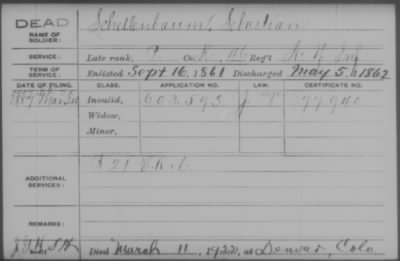 DEAD
NAME OF SOLDIER:
Schellenbaum, Sebastian
SERVICE:
Late rank, P Co. K, 46 Reg't N. Y. Inf
TERM OF SERVICE:
Enlisted Sept 16, 1861 Discharged May 5, 1862
DATE OF FILING. CLASS. APPLICATION NO. LAW. CERTIFICATE NO.
1887 Invalid, 603,593
Widow,
Minor,
ADDITIONAL SERVICES:
REMARKS:
Died March 11, 1922, at Denver, Colo